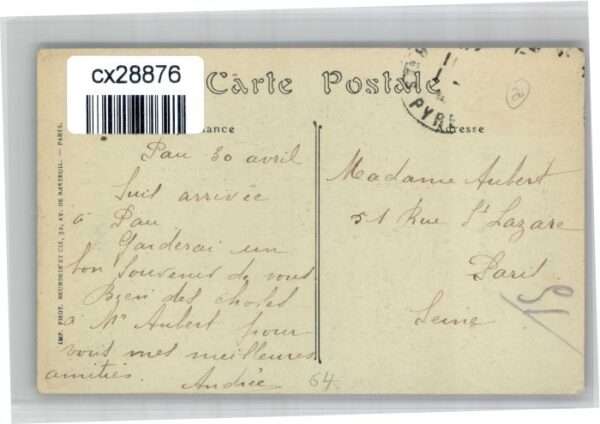 cx28876
Carte Postale
PYRE
ance
Adresse
IMP. PHOT. NEURDEIN ET CIE, 52, AV. DE BRETEUIL. — PARIS.
Pau 30 avril
Suis arrivée
à Pau
Garderai un
bon souvenir de vous
Bien des choses
à Mr Aubert pour
vous mes meilleures
amitiés.
Andrée
64
Madame Aubert
51 Rue St Lazare
Paris
Seine